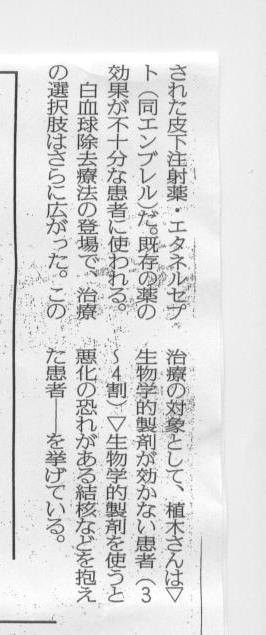 された皮下注射薬・エタネルセプ
ト（同エンブレル）だ。既存の薬の
効果が不十分な患者に使われる。
白血球除去療法の登場で、治療
の選択肢はさらに広がった。この
治療の対象として、植木さんは▽
生物学的製剤が効かない患者（３
～４割）▽生物学的製剤を使うと
悪化の恐れがある結核などを抱え
た患者――を挙げている。